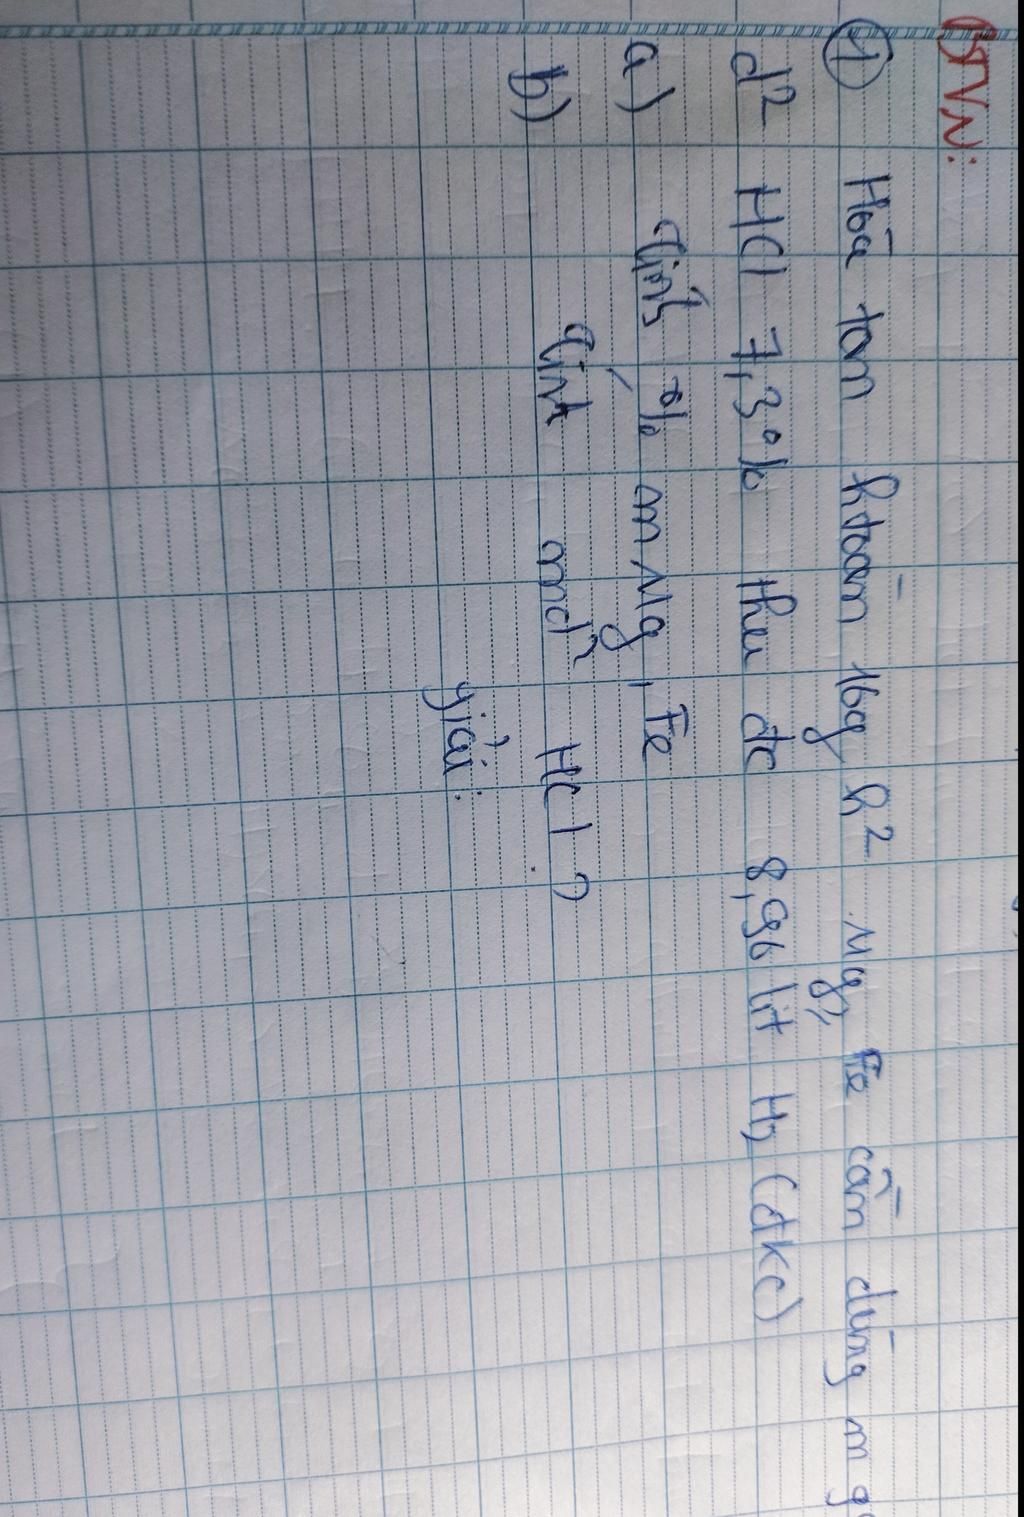 BTVN:
① Hòa tan htoàn 16g h² Mg, Fe cần dùng m g
d² HCl 7,3% thu đc 8,96 lít H₂ (đkc)
a) Tính % m Mg, Fe
b) Tính md² HCl ?
giải: